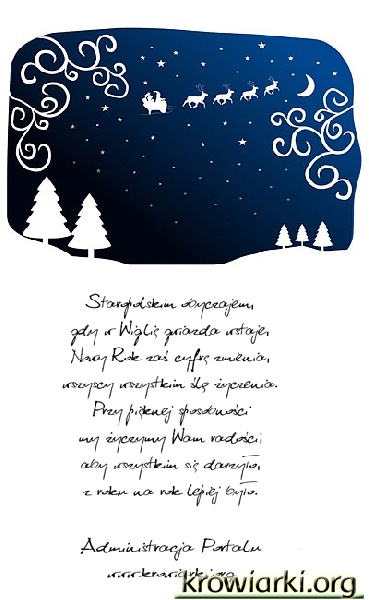 Staropolskim obyczajem,
gdy w Wigilię gwiazda wstaje,
Nowy Rok zaś cyfrę zmienia,
wszyscy wszystkim ślą życzenia.
Przy pięknej sposobności
my życzymy Wam radości,
aby wszystkim się darzyło,
z roku na rok lepiej było.
Administracja Portalu
www.krowiarki.org
krowiarki.org